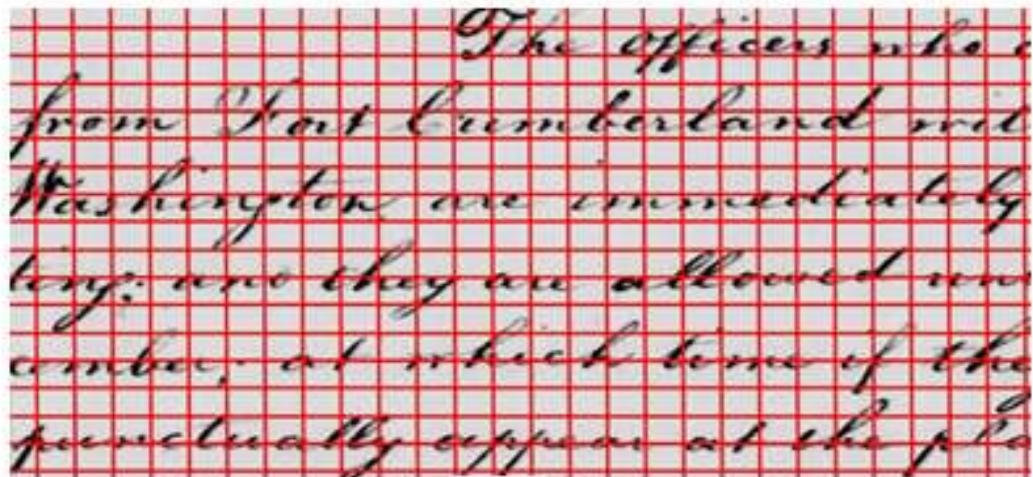 The officers who
from Fort Cumberland
Washington are immediately
ting: and they are allowed
cember; at which time if they
punctually appear at the pla